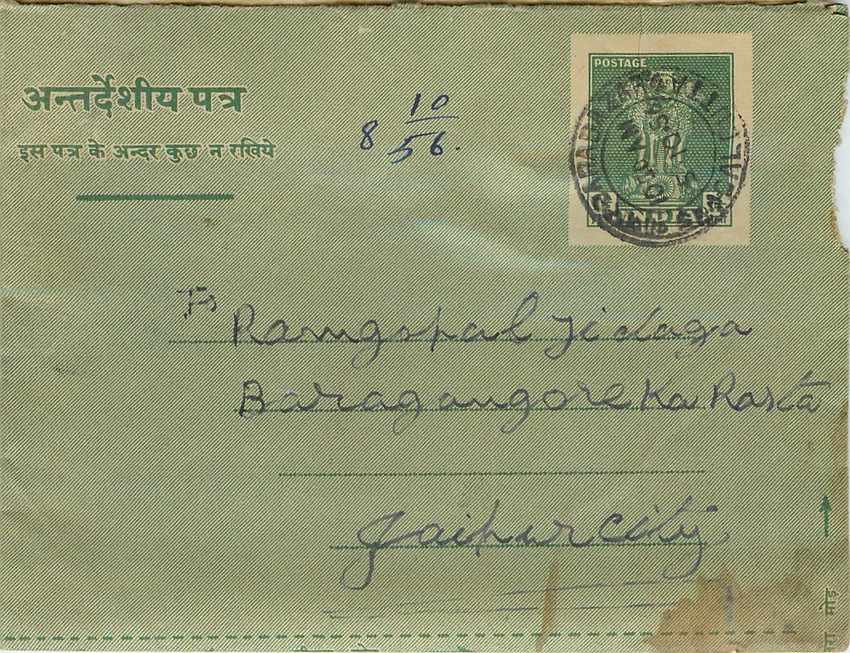 अन्तर्देशीय पत्र
इस पत्र के अन्दर कुछ न रखिये
8 10/56.
POSTAGE
INDIA
To
Ramgopal Ji daga
Baragangore Ka Rasta
Jaipur City
मोड़